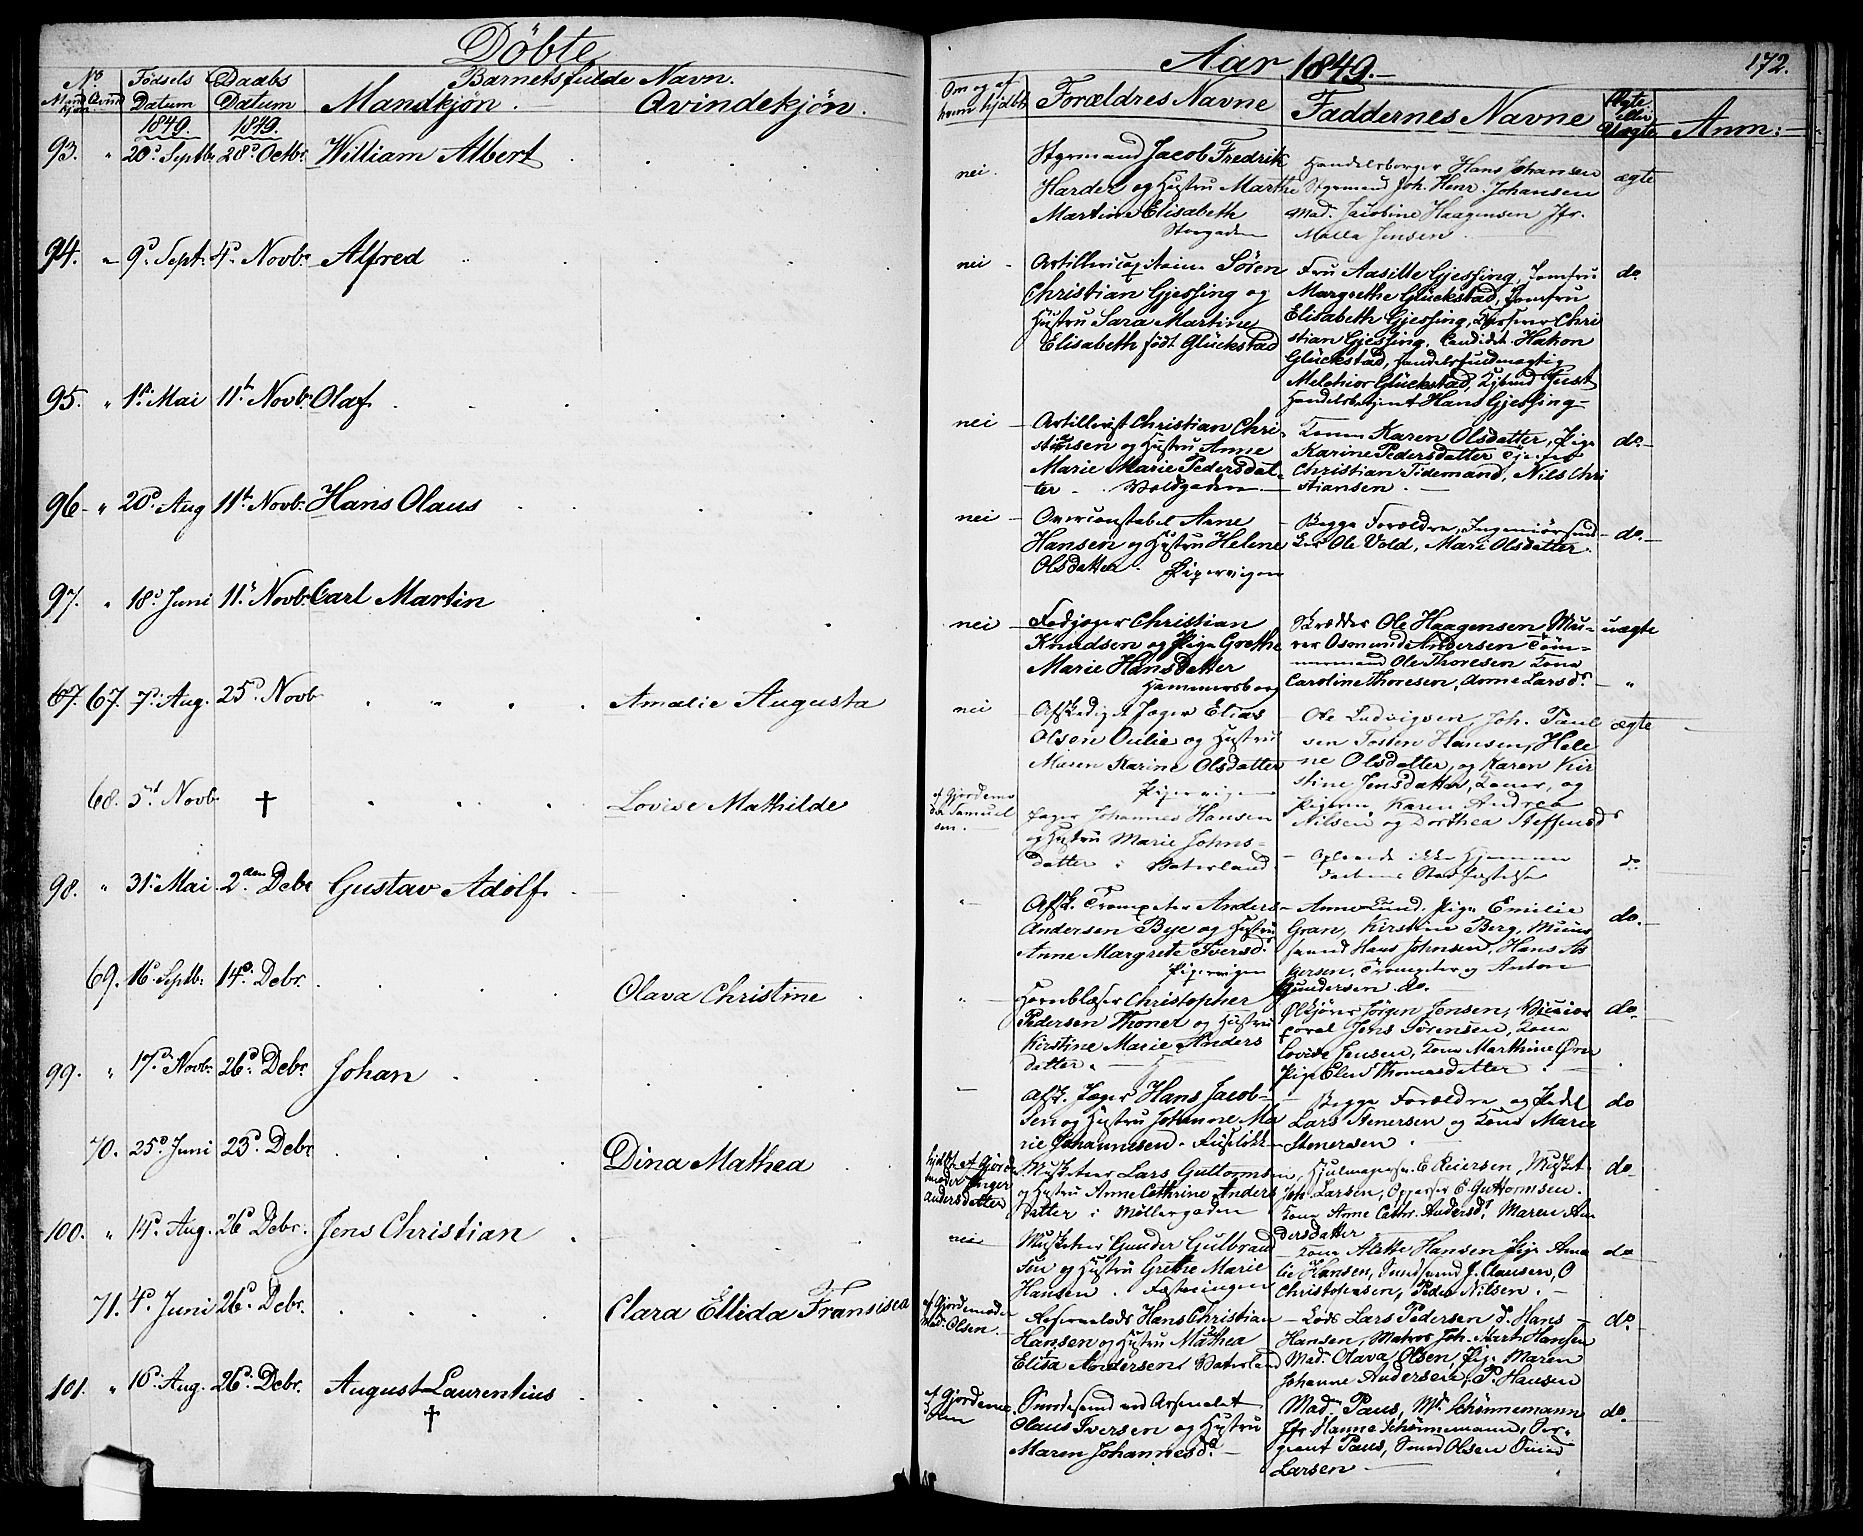 Döbte
Aar 1849.
172.
No Fødsels Daabs Barnets fulde Navn.
Mand kjøn Qvind Datum Datum Mandkjön. Qvindekjön.
Om og af hvem hjdbt Forældres Navne Faddernes Navne Ægte eller Uægte Anm:
1849. 1849.
93. " 20d Septb. 28d Octbr. William Albert
nei. Styrmand Jacob Fredrik
Harder og Hustru Marthe
Martine Elisabeth
Storgaden
Handelsborger Hans Johansen
Styrmand Joh. Henr. Johansen
Mad. Jacobine Haagensen Jfr.
Malla Jensen
ægte
94. " 9d Sept. 4d Novb. Alfred
nei Artillericapitaine Sören
Christian Gjessing og
Hustru Sara Martine
Elisabeth født Glückstad
Fru Aasille Gjessing, Jomfru
Margrethe Glückstad, Jomfru
Elisabeth Gjessing, Chri
stian Gjessing, Candidat Hakon
Glückstad, Handelsfuldmægtig
Melchior Glückstad, Just
Handelsbetjent Hans Gjessing
do.
95. " 1st Mai 11te Novb. Olaf
nei Artillerist Christian Chri-
stiansen og Hustru Anne
Marie Marie Pedersdat-
ter. Voldgaden
Konen Karen Olsdatter, Pige
Karine Pedersdatter
Christian Tidemand, Nils Chri
stiansen.
do.
96. " 20d Aug 11te Novb. Hans Olaus
nei Overconstabel Arne
Hansen og Hustru Helene
Olsdatter. Pipervigen
Begge Forældre, Ingeniørsund
Ole Vold, Mari Olsdatter.
do.
97. " 18d Juni 11te Novb. Carl Martin
nei Fedjæger Christian
Knudsen og Pige Grethe
Marie Hansdatter
Hammersborg
Skrædder Ole Haagensen Mu-
rer Osmund Andersen Töm-
mermand Ole Thoresen Kone
Caroline Thoresen, Anne Larsd.
uægte
67. 67. 7d Aug. 25d Novb Amalie Augusta
nei Afskediget Jæger Elias
Olsen Oulie og Hustru
Maren Karine Olsdatter
Pipervigen
Ole Ludvigsen, Joh. Paul
sen Tosten Hansen, Hele
ne Olsdatter, og Karen Kir
stine Jensdatter, Koner, og
Pigerne Karen Andrea
Nilsen og Dorthea Steffensd
ægte
68. 5d Novb † Lovise Mathilde
af Gjordemo
der Samuel
sen.
Jæger Johannes Hansen
og Hustru Marie Johns-
datter i Vaterland
Oplevede ikke Hjemme
daabens Stadfæstelse
do
98. " 31. Mai 2den Debr Gustav Adolf
" Afsk. Trompeter Anders
Andersen Bye og Hustru
Anne Margrete Iversd.
Pipervigen
Anne Lund, Pige Emilie
Gran, Kirstine Berg,
Hans Johnsen, Hans As
gersen, Trompeter og Anton
Gundersen do.
do.
69. 16d Septb. 14d Debr. Olava Christine
" Hornblæser Christopher
Pedersen Thoner og Hustru
Kirstine Marie Anders
datter.
Jörgen Jensen,
Jens Sörensen, Kone
Lovise Jensen, Kone Marthine
Pige Elen Thomasdatter.
do.
99. " 17d Novb. 26d Debr. Johan
Afsk. Jæger Hans Jacob-
sen og Hustru Johanne Ma
rie Johannesen.
Begge Forældre og Pedel
Lars Stenersen og Kone Marie
Stenersen
do
70. 25d Juni 23d Debr. Dina Mathea
hjdbt. af Gjorde
moder Inger
Andersdatter
Musketeer Lars Guttorms
og Hustru Anne Cathrine Anders
datter i Møllergaden
Hjulmagersv. E. Reiersen, Musket.
Joh. Larsen, E. Guttormsen.
Kone Anne Cathr. Andersd. Maren An
dersdatter
do.
100. " 14d Aug. 26d Debr. Jens Christian
nei Musketeer Gunder Gulbrand
sen og Hustru Grethe Marie
Hansen. Fæstningen
Kone Alette Hansen Pige Ama
lie Hansen, Smedsvend J. Clausen, O
Christophersen, Peder Nilsen.
do
71. 4d Juni 26d Debr. Clara Ellida Fransisca
af Gjordemoder
Mad. Olsen.
Reservelods Hans Christian
Hansen og Hustru Mathea
Elisa Andersen, Vaterland
Lods Lars Pedersen d. Hans
Hansen, Matros Joh. Hansen
Mad. Olava Olsen, Pige Maren
Johanne Andersen, P. Hansen
do.
101. " 16d Aug. 26d Debr. August Laurentius
†
af Gjordemo
Smedsvend ved Arsenalet
Olaus Iversen og Hustru
Maren Johannesd.
Mad. Paus, Schönnemann
Jfr. Hanne Schönnemann, Ser-
geant Paus, Smed Olsen
Larsen
do.